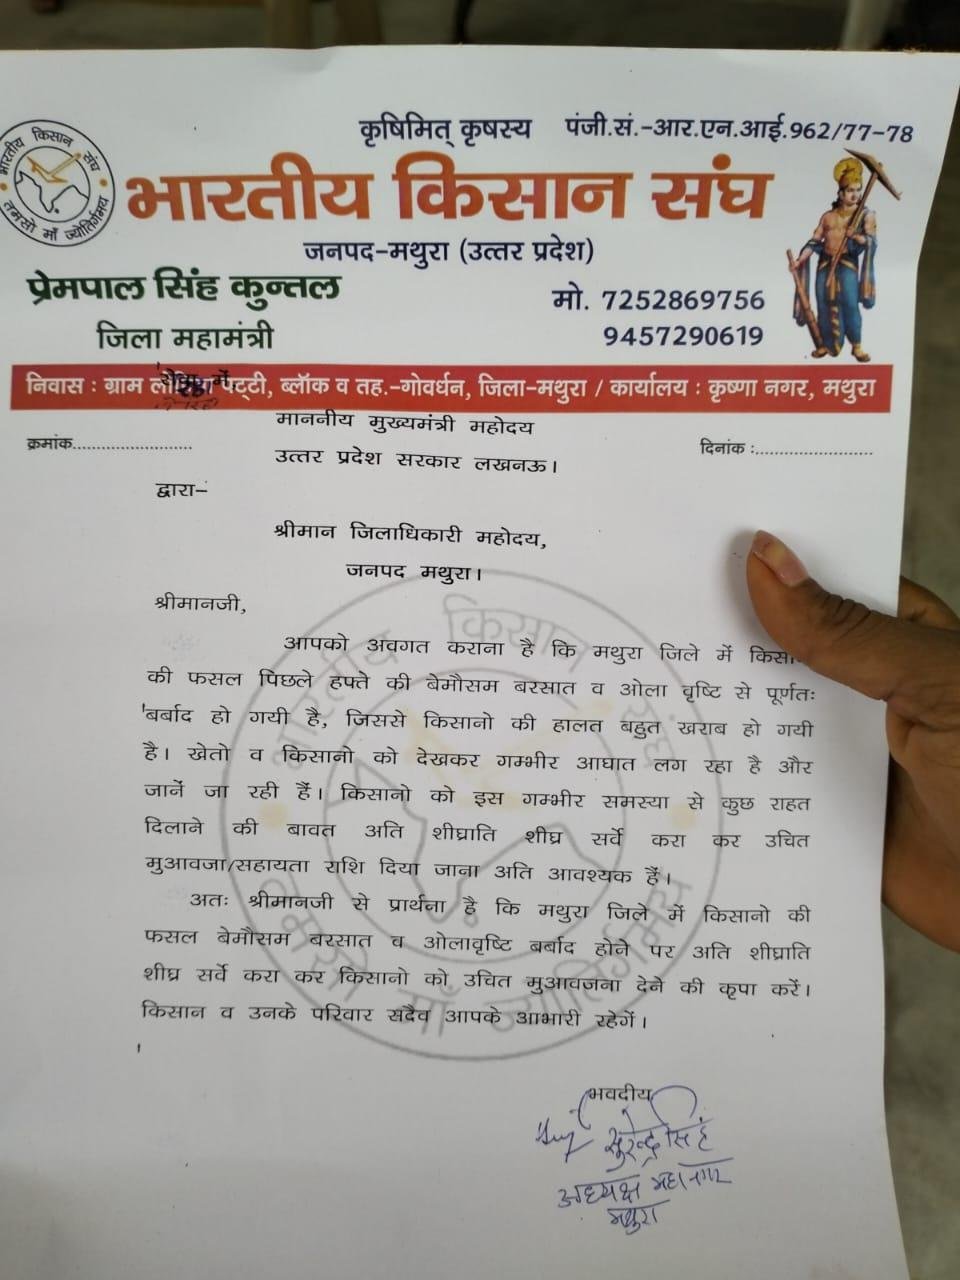 कृषिमित् कृषस्य    पंजी.सं.-आर.एन.आई.962/77-78
भारतीय किसान संघ
तमसो माँ ज्योतिर्गमय
भारतीय किसान संघ
जनपद-मथुरा (उत्तर प्रदेश)
प्रेमपाल सिंह कुन्तल
जिला महामंत्री
मो. 7252869756
9457290619
सेवा में,
निवास : ग्राम पट्टी, ब्लॉक व तह.-गोवर्धन, जिला-मथुरा / कार्यालय : कृष्णा नगर, मथुरा
माननीय मुख्यमंत्री महोदय
क्रमांक........................... दिनांक :..........................
उत्तर प्रदेश सरकार लखनऊ।
द्वारा–
श्रीमान जिलाधिकारी महोदय,
जनपद मथुरा।
श्रीमानजी,
आपको अवगत कराना है कि मथुरा जिले में
की फसल पिछले हफ्ते की बेमौसम बरसात व ओला वृष्टि से पूर्णतः
बर्बाद हो गयी है, जिससे किसानो की हालत बहुत खराब हो गयी
है। खेतो व किसानो को देखकर गम्भीर आघात लग रहा है और
जानें जा रही हैं। किसानो को इस गम्भीर समस्या से कुछ राहत
दिलाने की बावत अति शीघ्राति शीघ्र सर्वे करा कर उचित
मुआवजा/सहायता राशि दिया जाना अति आवश्यक हैं।
अतः श्रीमानजी से प्रार्थना है कि मथुरा जिले में किसानो की
फसल बेमौसम बरसात व ओलावृष्टि बर्बाद होने पर अति शीघ्राति
शीघ्र सर्वे करा कर किसानो को उचित मुआवजना देने की कृपा करें।
किसान व उनके परिवार सदैव आपके आभारी रहेगें।
भारतीय किसान संघ
तमसो माँ ज्योतिर्गमय
भवदीय
सुरेन्द्र सिंह
अध्यक्ष महानगर
मथुरा